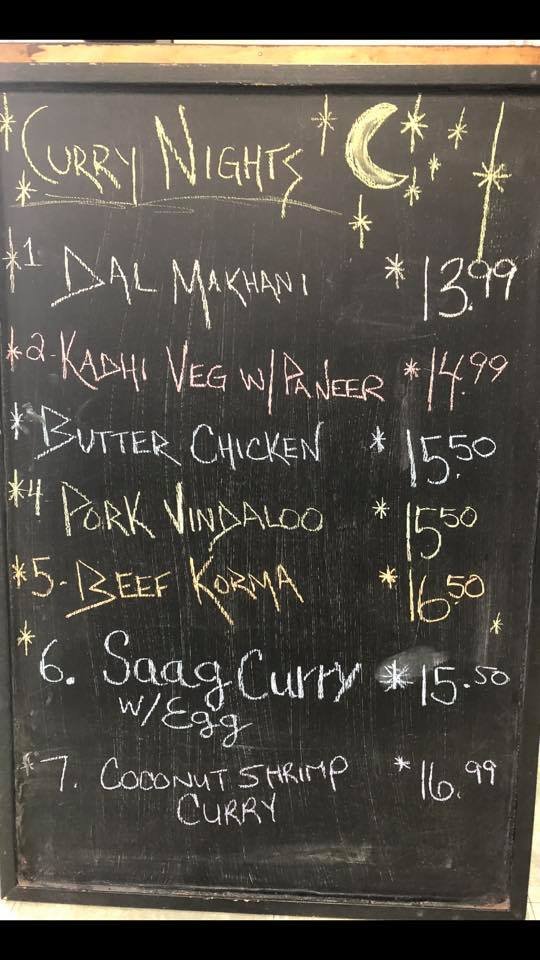 CURRY NIGHTS
*1 DAL MAKHANI *13.99
*2-KADHI VEG W/PANEER *14.99
* BUTTER CHICKEN * 15.50
*4 PORK VINDALOO * 15.50
*5-BEEF KORMA *16.50
*6. Saag Curry *15.50
w/Egg
*7. COCONUT SHRIMP *16.99
CURRY